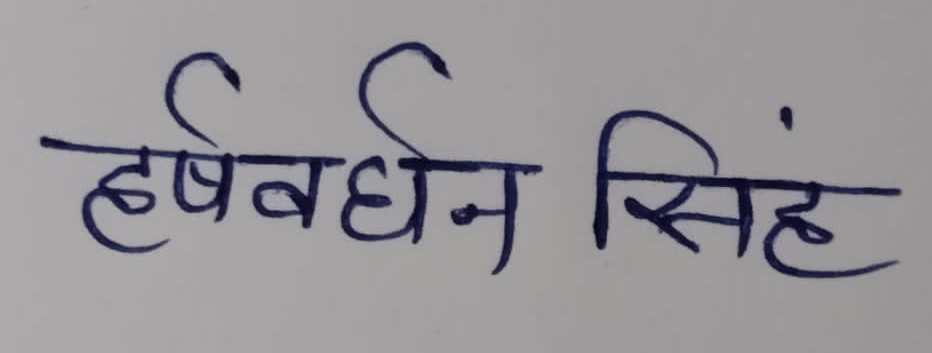 हर्षवर्धन सिंह